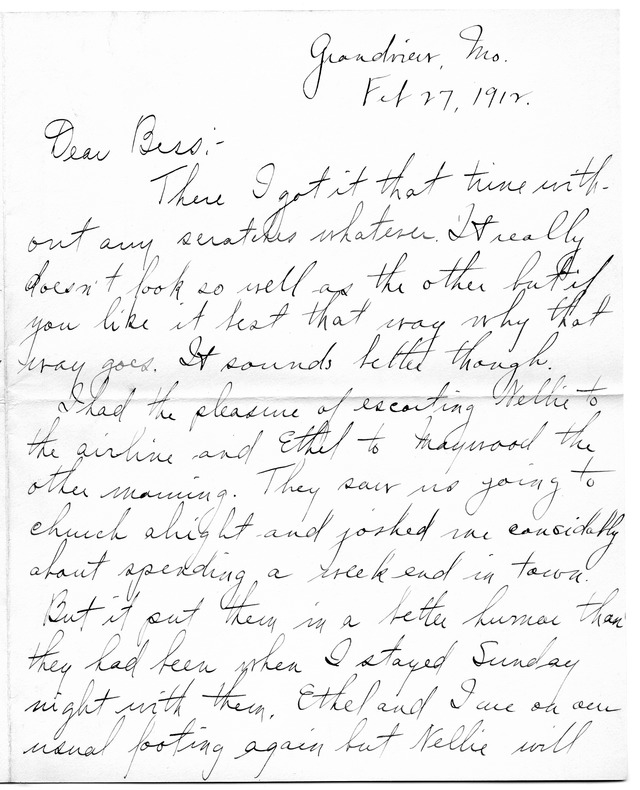 Grandview, Mo.
Feb 27, 1912.
Dear Bess:-
There I got it that time with-
out any scratches whatever. It really
doesn't look so well as the other but if
you like it best that way why that
way goes. It sounds better though.
I had the pleasure of escorting Nellie to
the airline and Ethel to Maywood the
other morning. They saw us going to
church alright and joshed me considably
about spending a week end in town.
But it put them in a better humor than
they had been when I stayed Sunday
night with them. Ethel and I are on our
usual footing again but Nellie will